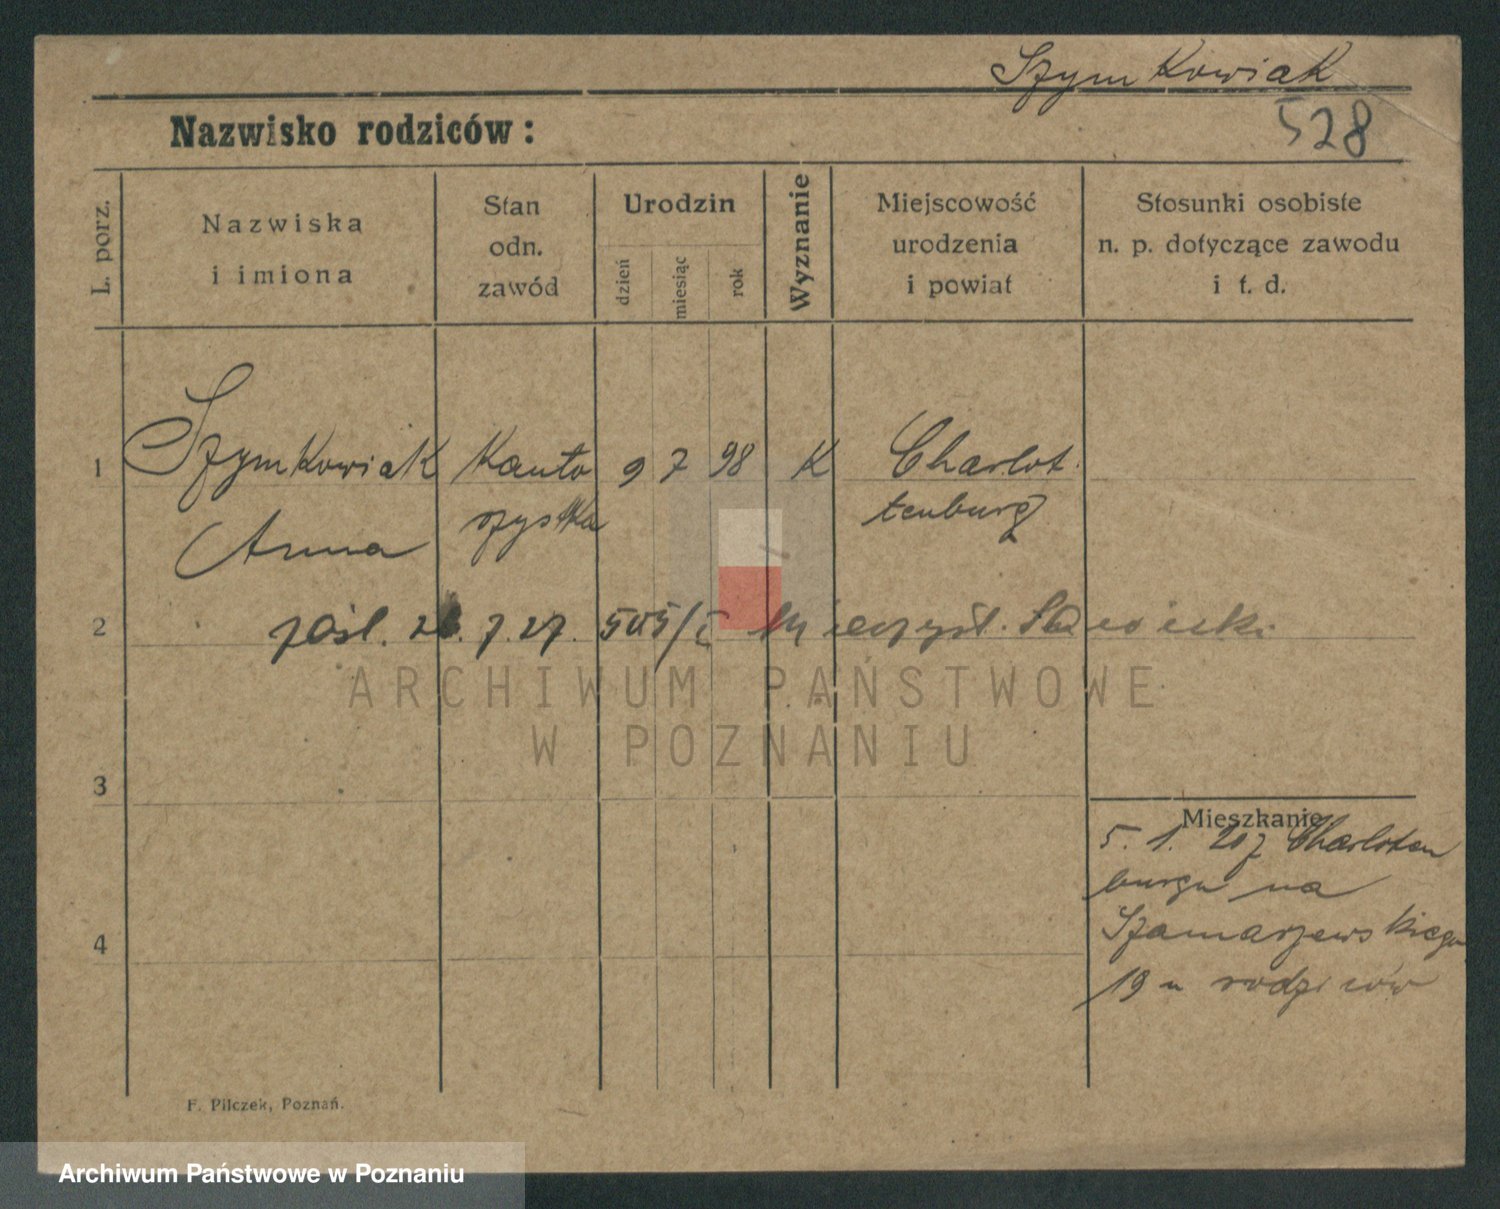 Szymkowiak
528
Nazwisko rodziców:
L. porz.
Nazwiska
i imiona
Stan
odn.
zawód
Urodzin
dzień
miesiąc
rok
Wyznanie
Miejscowość
urodzenia
i powiat
Stosunki osobiste
n. p. dotyczące zawodu
i t. d.
1 Szymkowiak Kanto 9 7 98 K Charlot
Anna rzystka tenburg
2 zaśl. 26. 7. 27. 505/I Mieczysł. Sawicki
ARCHIWUM PAŃSTWOWE
W POZNANIU
3
Mieszkanie
5. 1. 20 z Charloten
burga na
Szamarzewskiego
4
19 u rodziców
F. Pilczek, Poznań.
Archiwum Państwowe w Poznaniu